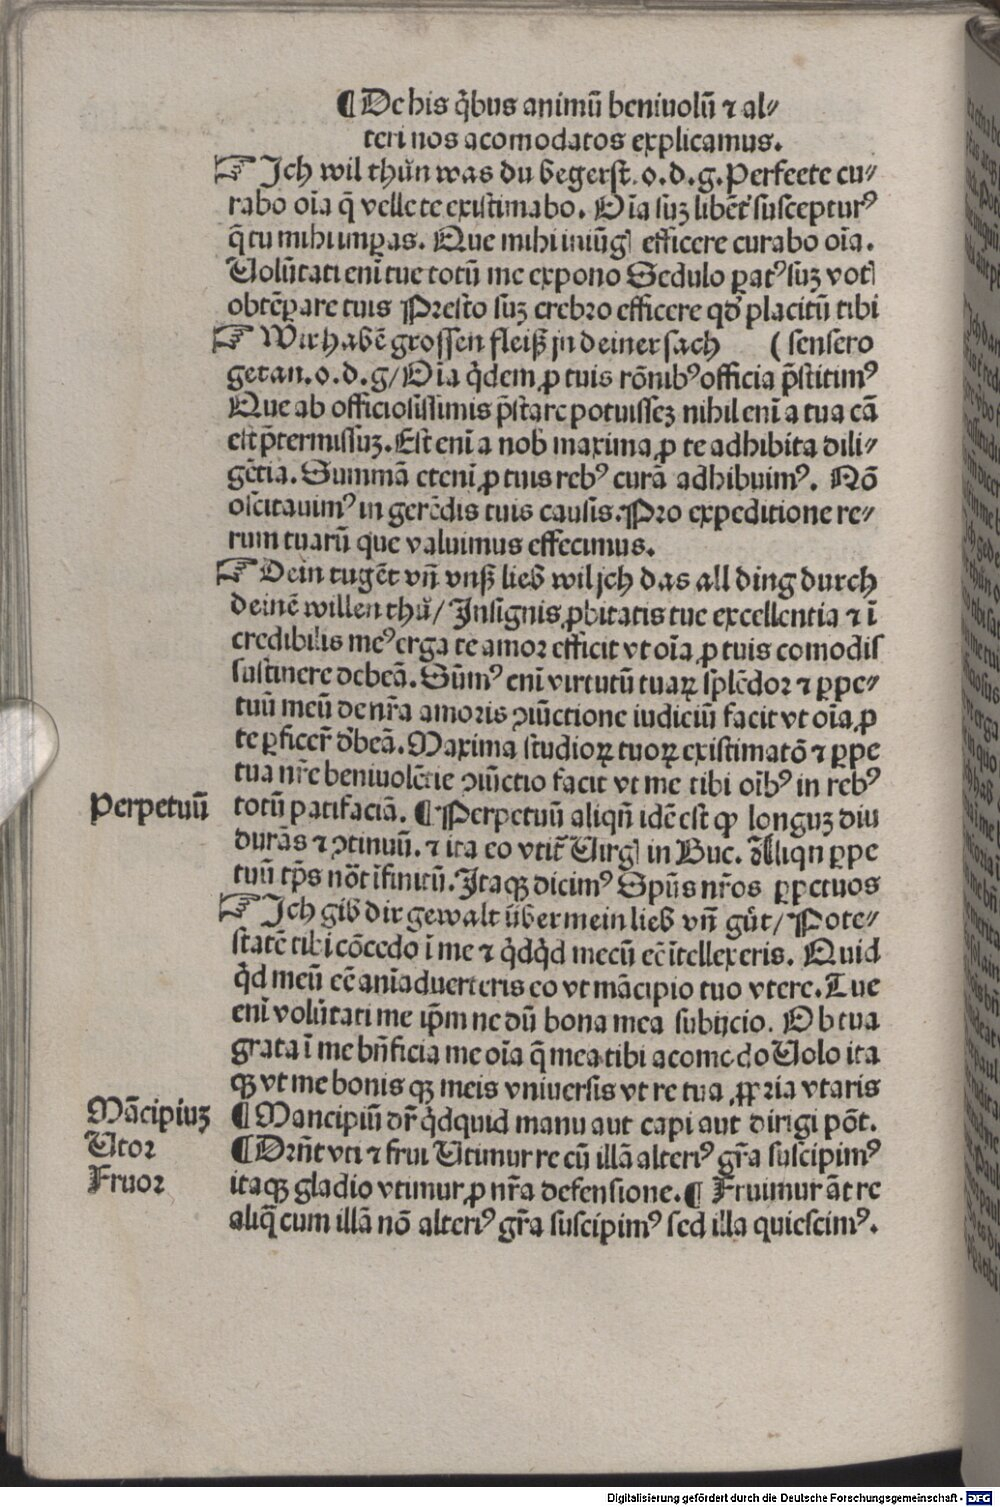 ¶ De his q̃bus animū beniuolū ⁊ al⸗
teri nos acomodatos explicamus.
☞ Jch wil thůn was du begerst. o. d. g. Perfecte cu⸗
rabo oīa q̃ velle te existimabo. Oīa suꝫ libēt᷑ susceptur⁹
q̃ tu mihi imꝑas. Que mihi iniūgꝭ efficere curabo oīa.
Volūtati enī tue totū me expono Sedulo ꝑat⁹ suꝫ votꝭ
obtēꝑare tuis Presto suꝫ crebro efficere qď placitū tibi
☞ Wir habē grossen fleiß jn deiner sach ( sensero
getan. o. d. g/ Oīa q̇dem ꝓ tuis rōnib⁹ officia p̄stitim⁹
Que ab officiosissimis p̄stare potuisseꝫ nihil enī a tua cā
est p̄termissuꝫ. Est enī a nob̄ maxima ꝓ te adhibita dili⸗
gētia. Summā etenī ꝓ tuis reb⁹ curā adhibuim⁹. Nō
oscitauim⁹ in gerēdis tuis causis. Pro expeditione re⸗
rum tuarū que valuimus effecimus.
☞ Dein tugēt vn̄ vnß lieb wil jch das all ding durch
deinē willen thů/ Jnsignis ꝓbitatis tue excellentia ⁊ ī
credibilis me⁹ erga te amor efficit vt oīa ꝓ tuis comodis
sustinere debeā. Sūm⁹ enī virtutū tuaꝝ splēdor ⁊ ꝑpe⸗
tuū meū de nr̄a amoris ꝯiūctione iudiciū facit vt oīa ꝓ
te ꝑficer᷑ d̄beā. Maxima studioꝝ tuoꝝ existimatō ⁊ ꝑpe
tua nr̄e beniuolētie ꝯiūctio facit vt me tibi oīb⁹ in reb⁹
Perpetuū
totū patifaciā. ¶ Perpetuū aliqn̄ idē est ꝙ longuꝫ diu
durās ⁊ ꝯtinuū. ⁊ ita eo vtit᷑ Virgꝭ in Buc. Aliqn̄ ꝑpe
tuū tp̄s nōt īfinitū. Jtaqꝫ dicim⁹ Spūs nr̄os ꝑpetuos
☞ Jch gib dir gewalt über mein lieb vn̄ gůt/ Pote⸗
statē tibi cōcedo ī me ⁊ q̇dq̇d mecū eē ītellexeris. Quid
q̇d meū eē anīaduerteris eo vt mācipio tuo vtere. Tue
enī volūtati me ip̄m ne dū bona mea subijcio. Ob tua
grata ī me bn̄ficia me oīa q̃ mea tibi acomodo Volo ita
qꝫ vt me bonis qꝫ meis vniuersis vt re tua ꝓpria vtaris
Mācipiuꝫ
¶ Mancipiū dr̄ q̇dquid manu aut capi aut dirigi pōt.
Vtor
¶ Drn̄t vti ⁊ frui Vtimur re cū illā alteri⁹ gr̄a suscipim⁹
Fruor
itaqꝫ gladio vtimur ꝓ nr̄a defensione. ¶ Fruimur āt re
aliq̃ cum illā nō alteri⁹ gr̄a suscipim⁹ sed illa quiescim⁹.
Digitalisierung gefördert durch die Deutsche Forschungsgemeinschaft - DFG